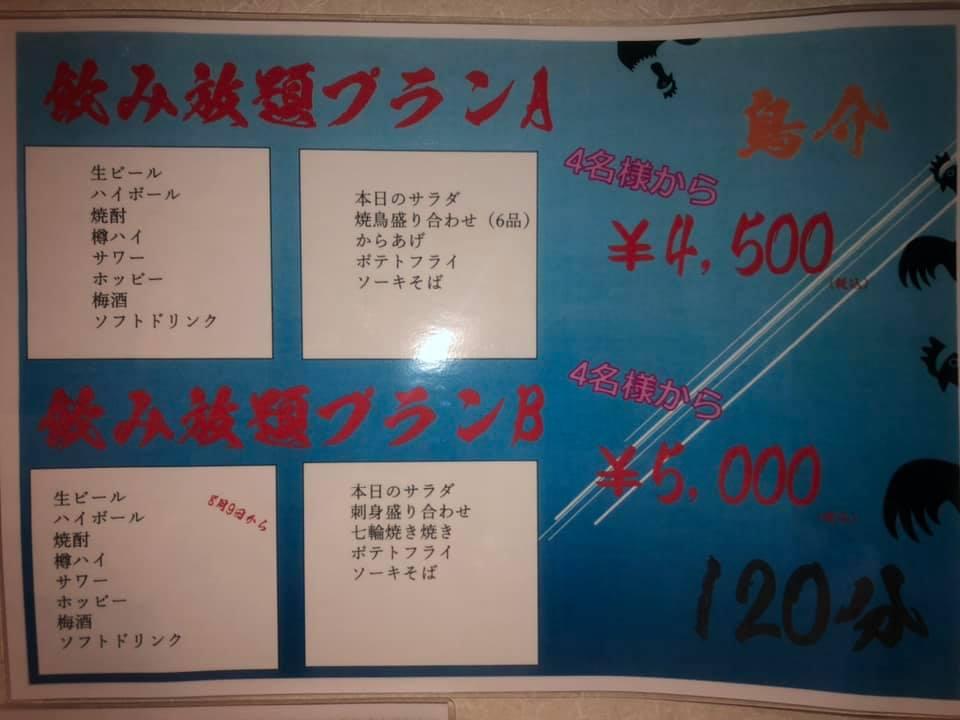 飲み放題プランA
生ビール
ハイボール
焼酎
樽ハイ
サワー
ホッピー
梅酒
ソフトドリンク
本日のサラダ
焼鳥盛り合わせ（6品）
からあげ
ポテトフライ
ソーキそば
鳥介
4名様から
¥4,500
(税込)
飲み放題プランB
生ビール
ハイボール
焼酎
樽ハイ
サワー
ホッピー
梅酒
ソフトドリンク
8月9日から
本日のサラダ
刺身盛り合わせ
七輪焼き焼き
ポテトフライ
ソーキそば
4名様から
¥5,000
(税込)
120分